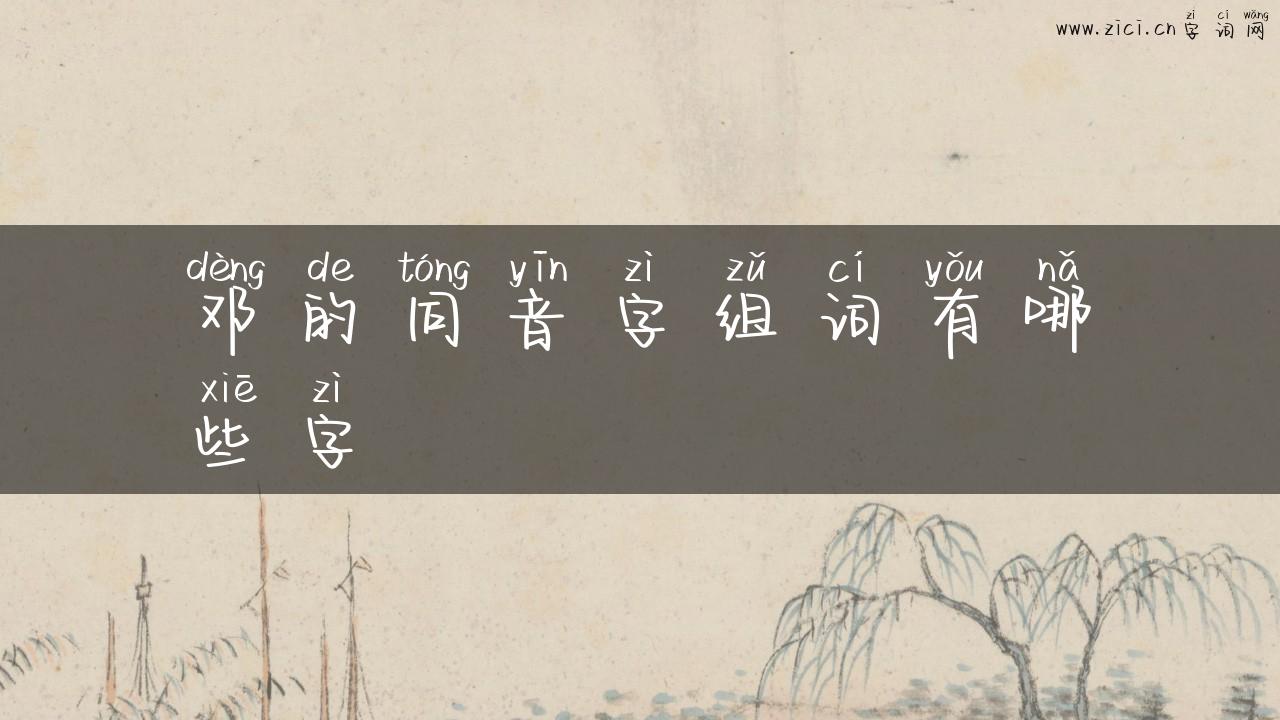 zì cí wǎng
www.zici.cn 字词网
dèng de tóng yīn zì zǔ cí yǒu nǎ
邓的同音字组词有哪
xiē zì
些字